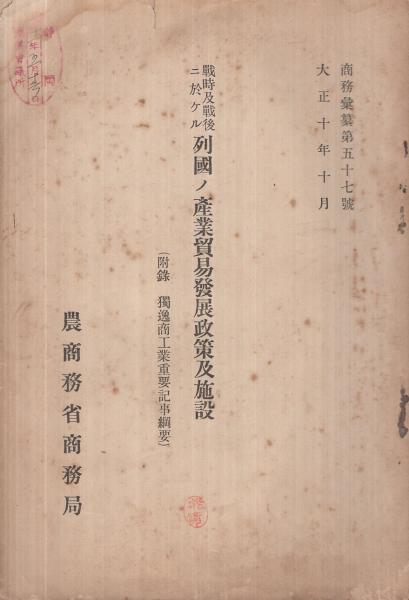 商務彙纂第五十七號
大正十年十月
戰時及戰後ニ於ケル
列國ノ產業貿易發展政策及施設
(附錄 獨逸商工業重要記事綱要)
農商務省商務局